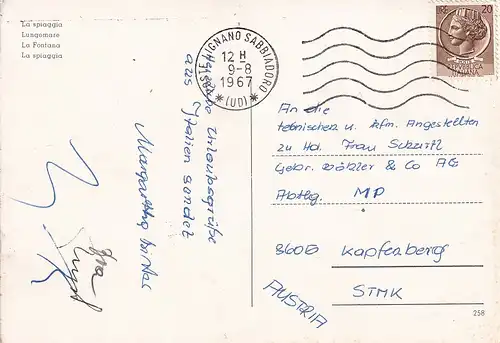 La spiaggia
Lungomare
La Fontana
La spiaggia
LIGNANO SABBIADORO
12 H
9-8
1967
(UD)
20
Herzliche Urlaubsgrüße
aus Italien sendet
An die
technischen u. kfm. Angestellten
zu Hd. Frau
Gebr. Böhler & Co AG
Abtlg. MP
8605 Kapfenberg
STMK
AUSTRIA
258